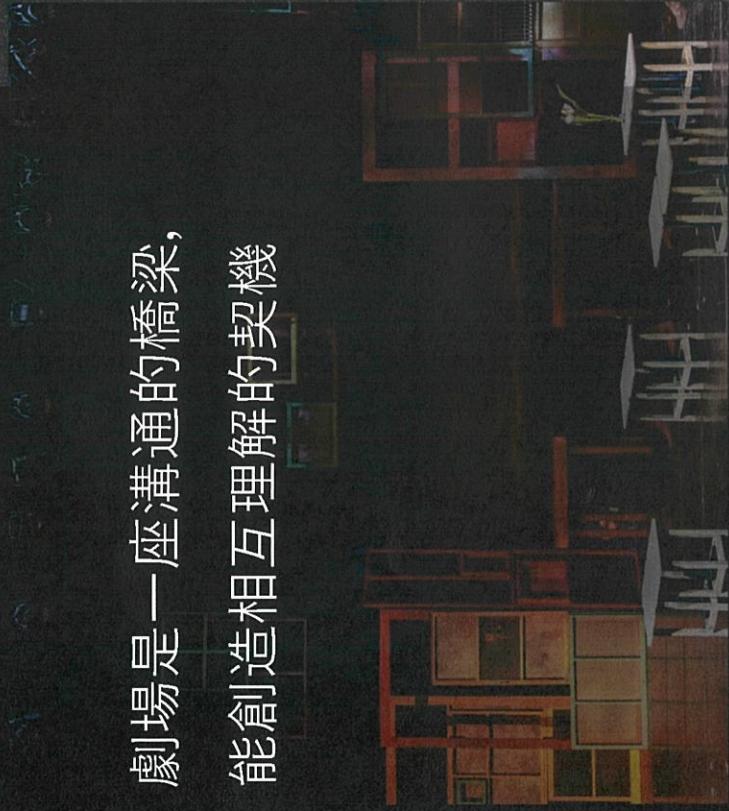 劇場是一座溝通的橋梁，
能創造相互理解的契機